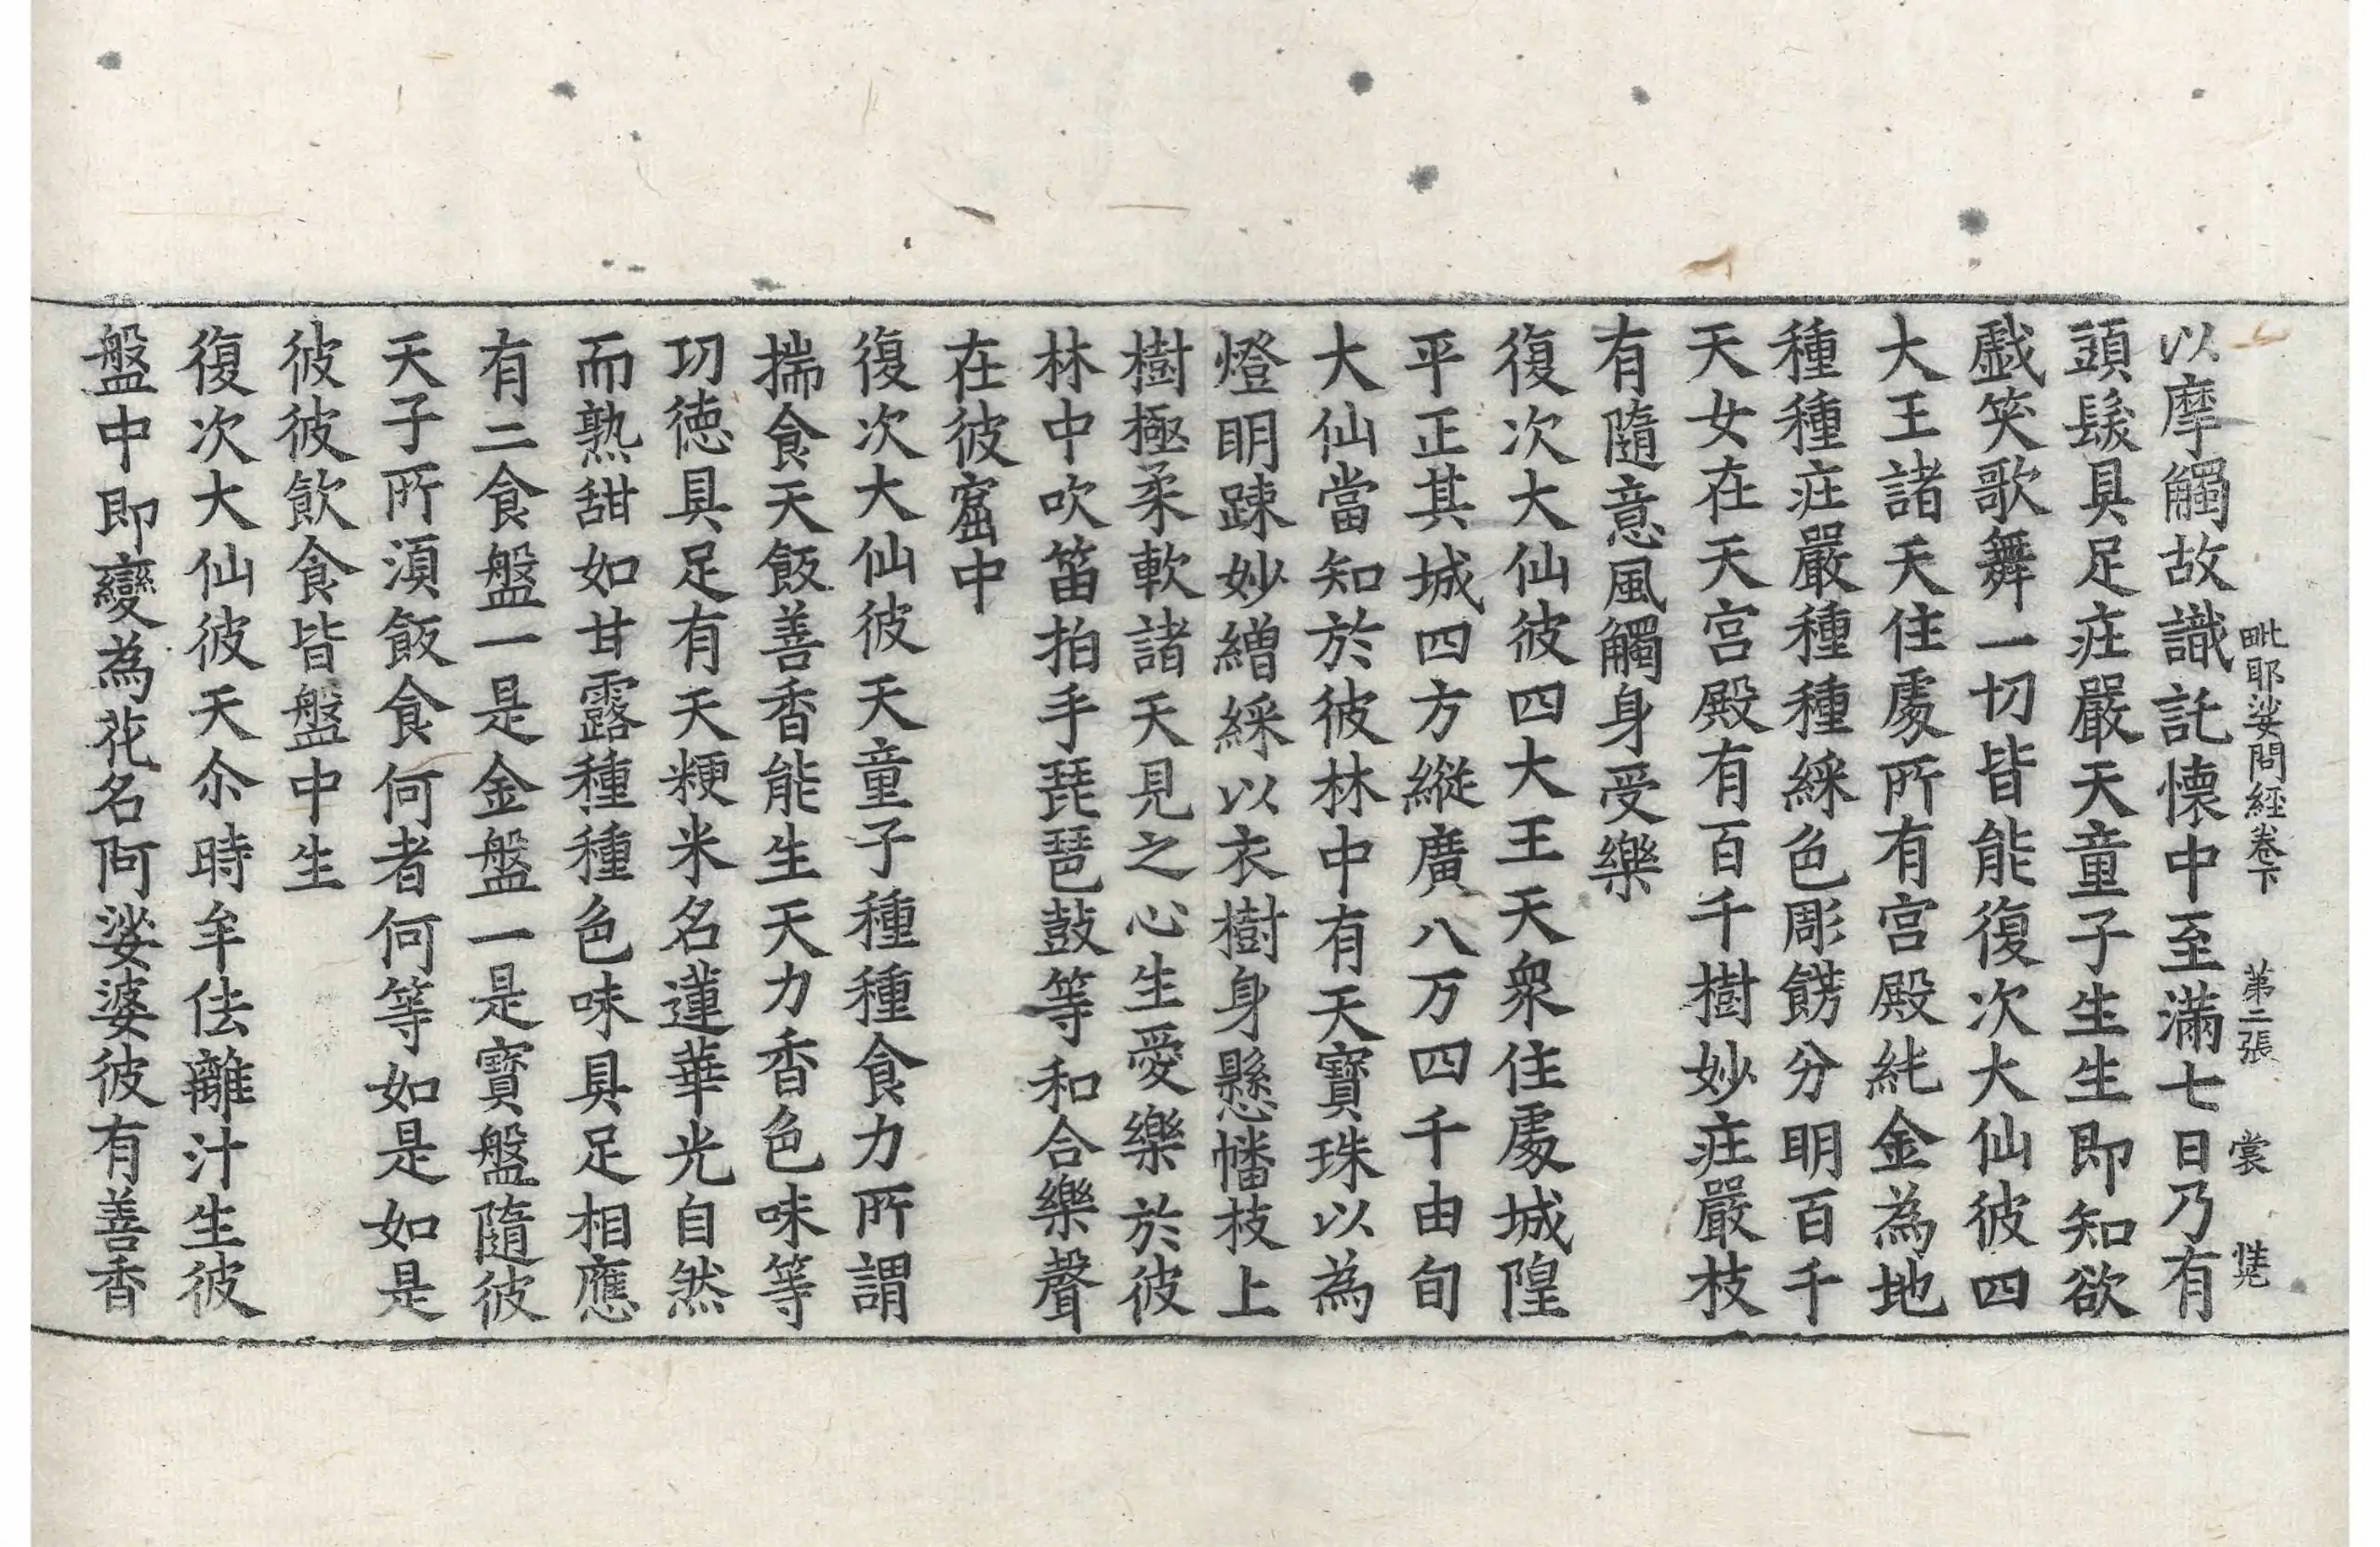 毗耶娑問經卷下 第二張 裳
以摩觸故識託懷中至滿七日乃有
頭髮具足庄嚴天童子生生即知欲
戯笑歌舞一切皆能復次大仙彼四
大王諸天住處所有宫殿純金為地
種種庄嚴種種綵色彫餝分明百千
天女在天宫殿有百千樹妙庄嚴枝
有隨意風觸身受樂
復次大仙彼四大王天衆住處城隍
平正其城四方縱廣八万四千由旬
大仙當知於彼林中有天寶珠以為
燈明踈妙繒綵以衣樹身懸幡枝上
樹極柔軟諸天見之心生愛樂於彼
林中吹笛拍手琵琶鼓等和合樂聲
在彼窟中
復次大仙彼天童子種種食力所謂
揣食天飯善香能生天力香色味等
功徳具足有天粳米名蓮華光自然
而熟甜如甘露種種色味具足相應
有二食盤一是金盤一是寶盤隨彼
天子所湏飯食何者何等如是如是
彼彼飲食皆盤中生
復次大仙彼天尒時牟佉離汁生彼
盤中即變為花名阿娑婆彼有善香